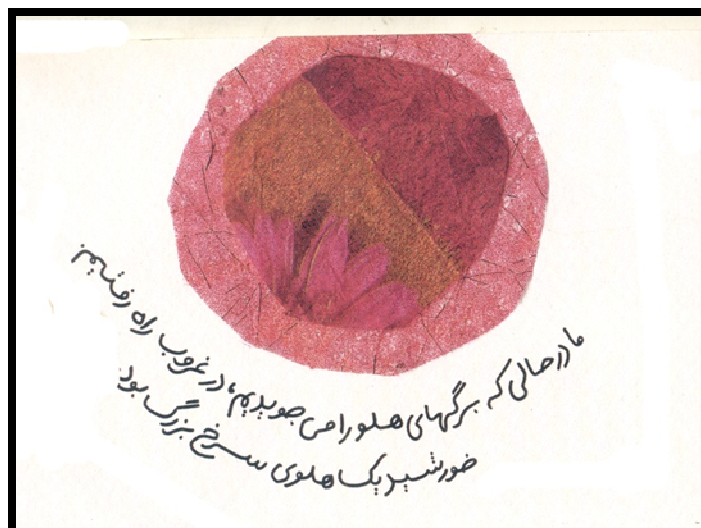 ما در حالی که برگهای هلو را می جویدیم، در غروب راه رفتیم.
خورشید یک هلوی سرخ بزرگ بود.